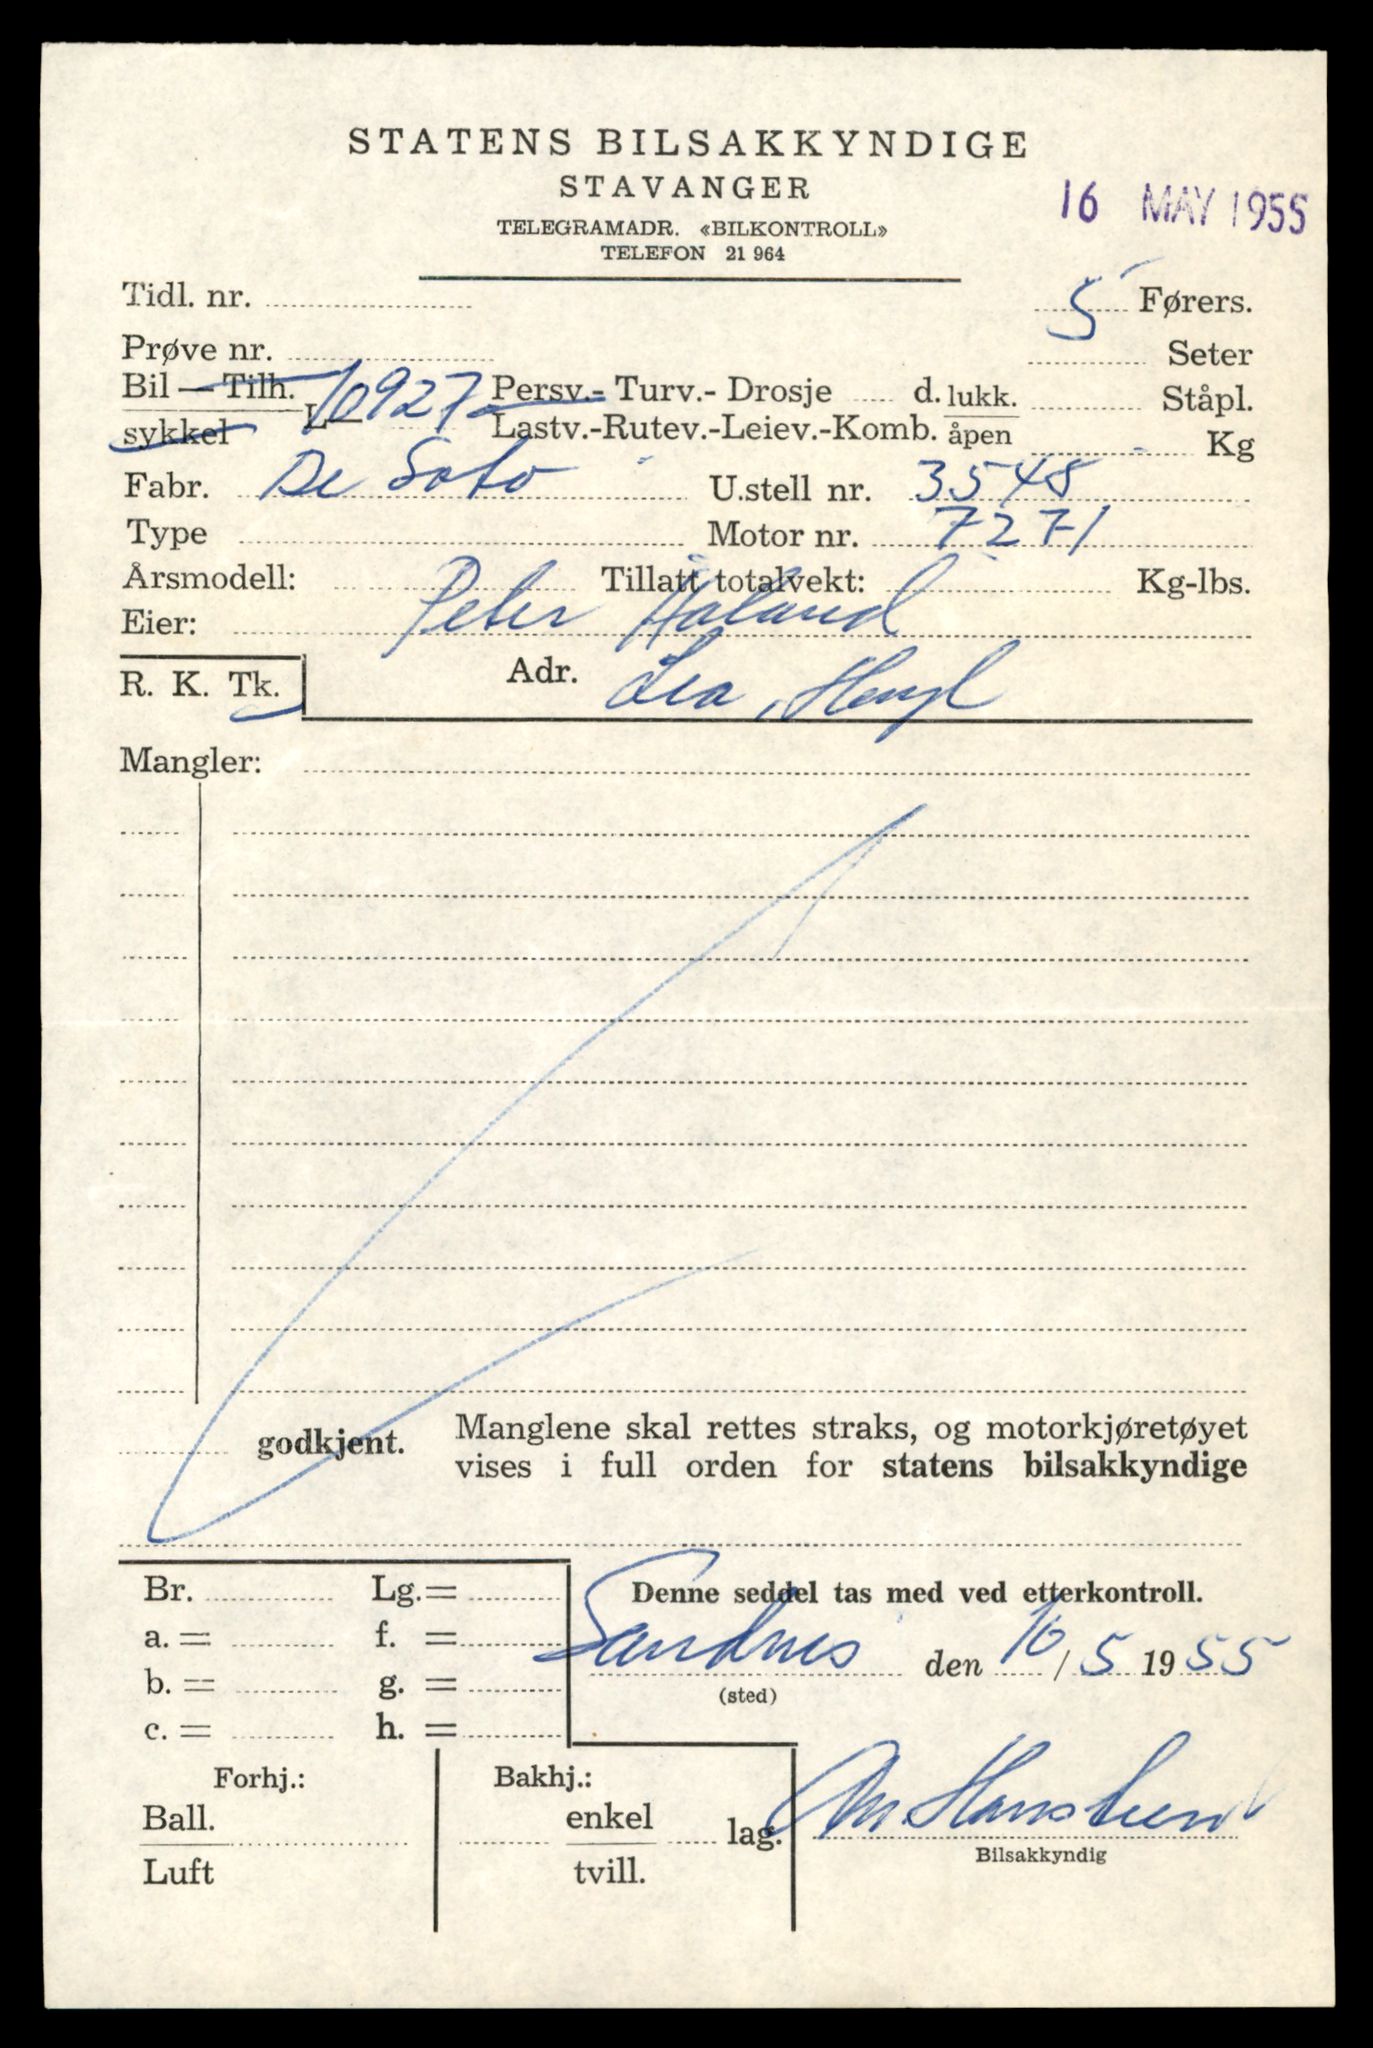 STATENS BILSAKKYNDIGE
STAVANGER
16 MAY 1955
TELEGRAMADR. «BILKONTROLL»
TELEFON 21 964
Tidl. nr. 5 Førers.
Prøve nr. Seter
Bil — Tilh. L 10927 Persv.- Turv.- Drosje d. lukk. Ståpl.
sykkel Lastv.-Rutev.-Leiev.-Komb. åpen Kg
Fabr. De Soto U.stell nr. 3548
Type Motor nr. 7271
Årsmodell: Tillatt totalvekt: Kg-lbs.
Eier: Peter Håland
R. K. Tk. Adr. Lea,
Mangler:
godkjent. Manglene skal rettes straks, og motorkjøretøyet
vises i full orden for statens bilsakkyndige
Br. Lg.= Denne seddel tas med ved etterkontroll.
a. = f. =
Sandnes den 16/5 1955
b. = g. = (sted)
c. = h. =
Forhj.: Bakhj.:
Ball. enkel lag.
Bilsakkyndig
Luft tvill.